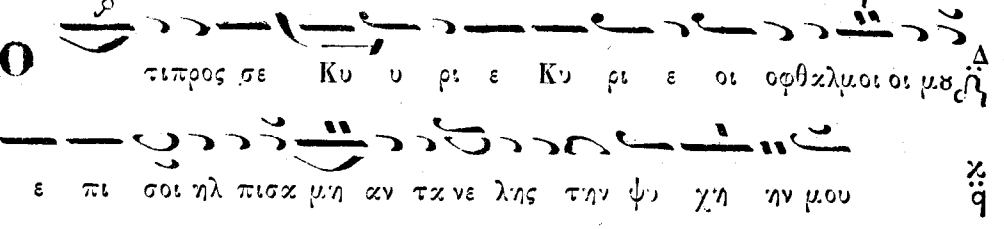 Ο τιπρος σε Κυ υ ρι ε Κυ ρι ε οι οφθαλμοι οι μου Δ
ε πι σοι ηλ πισα μη αν τα νε λης την ψυ χη ην μου